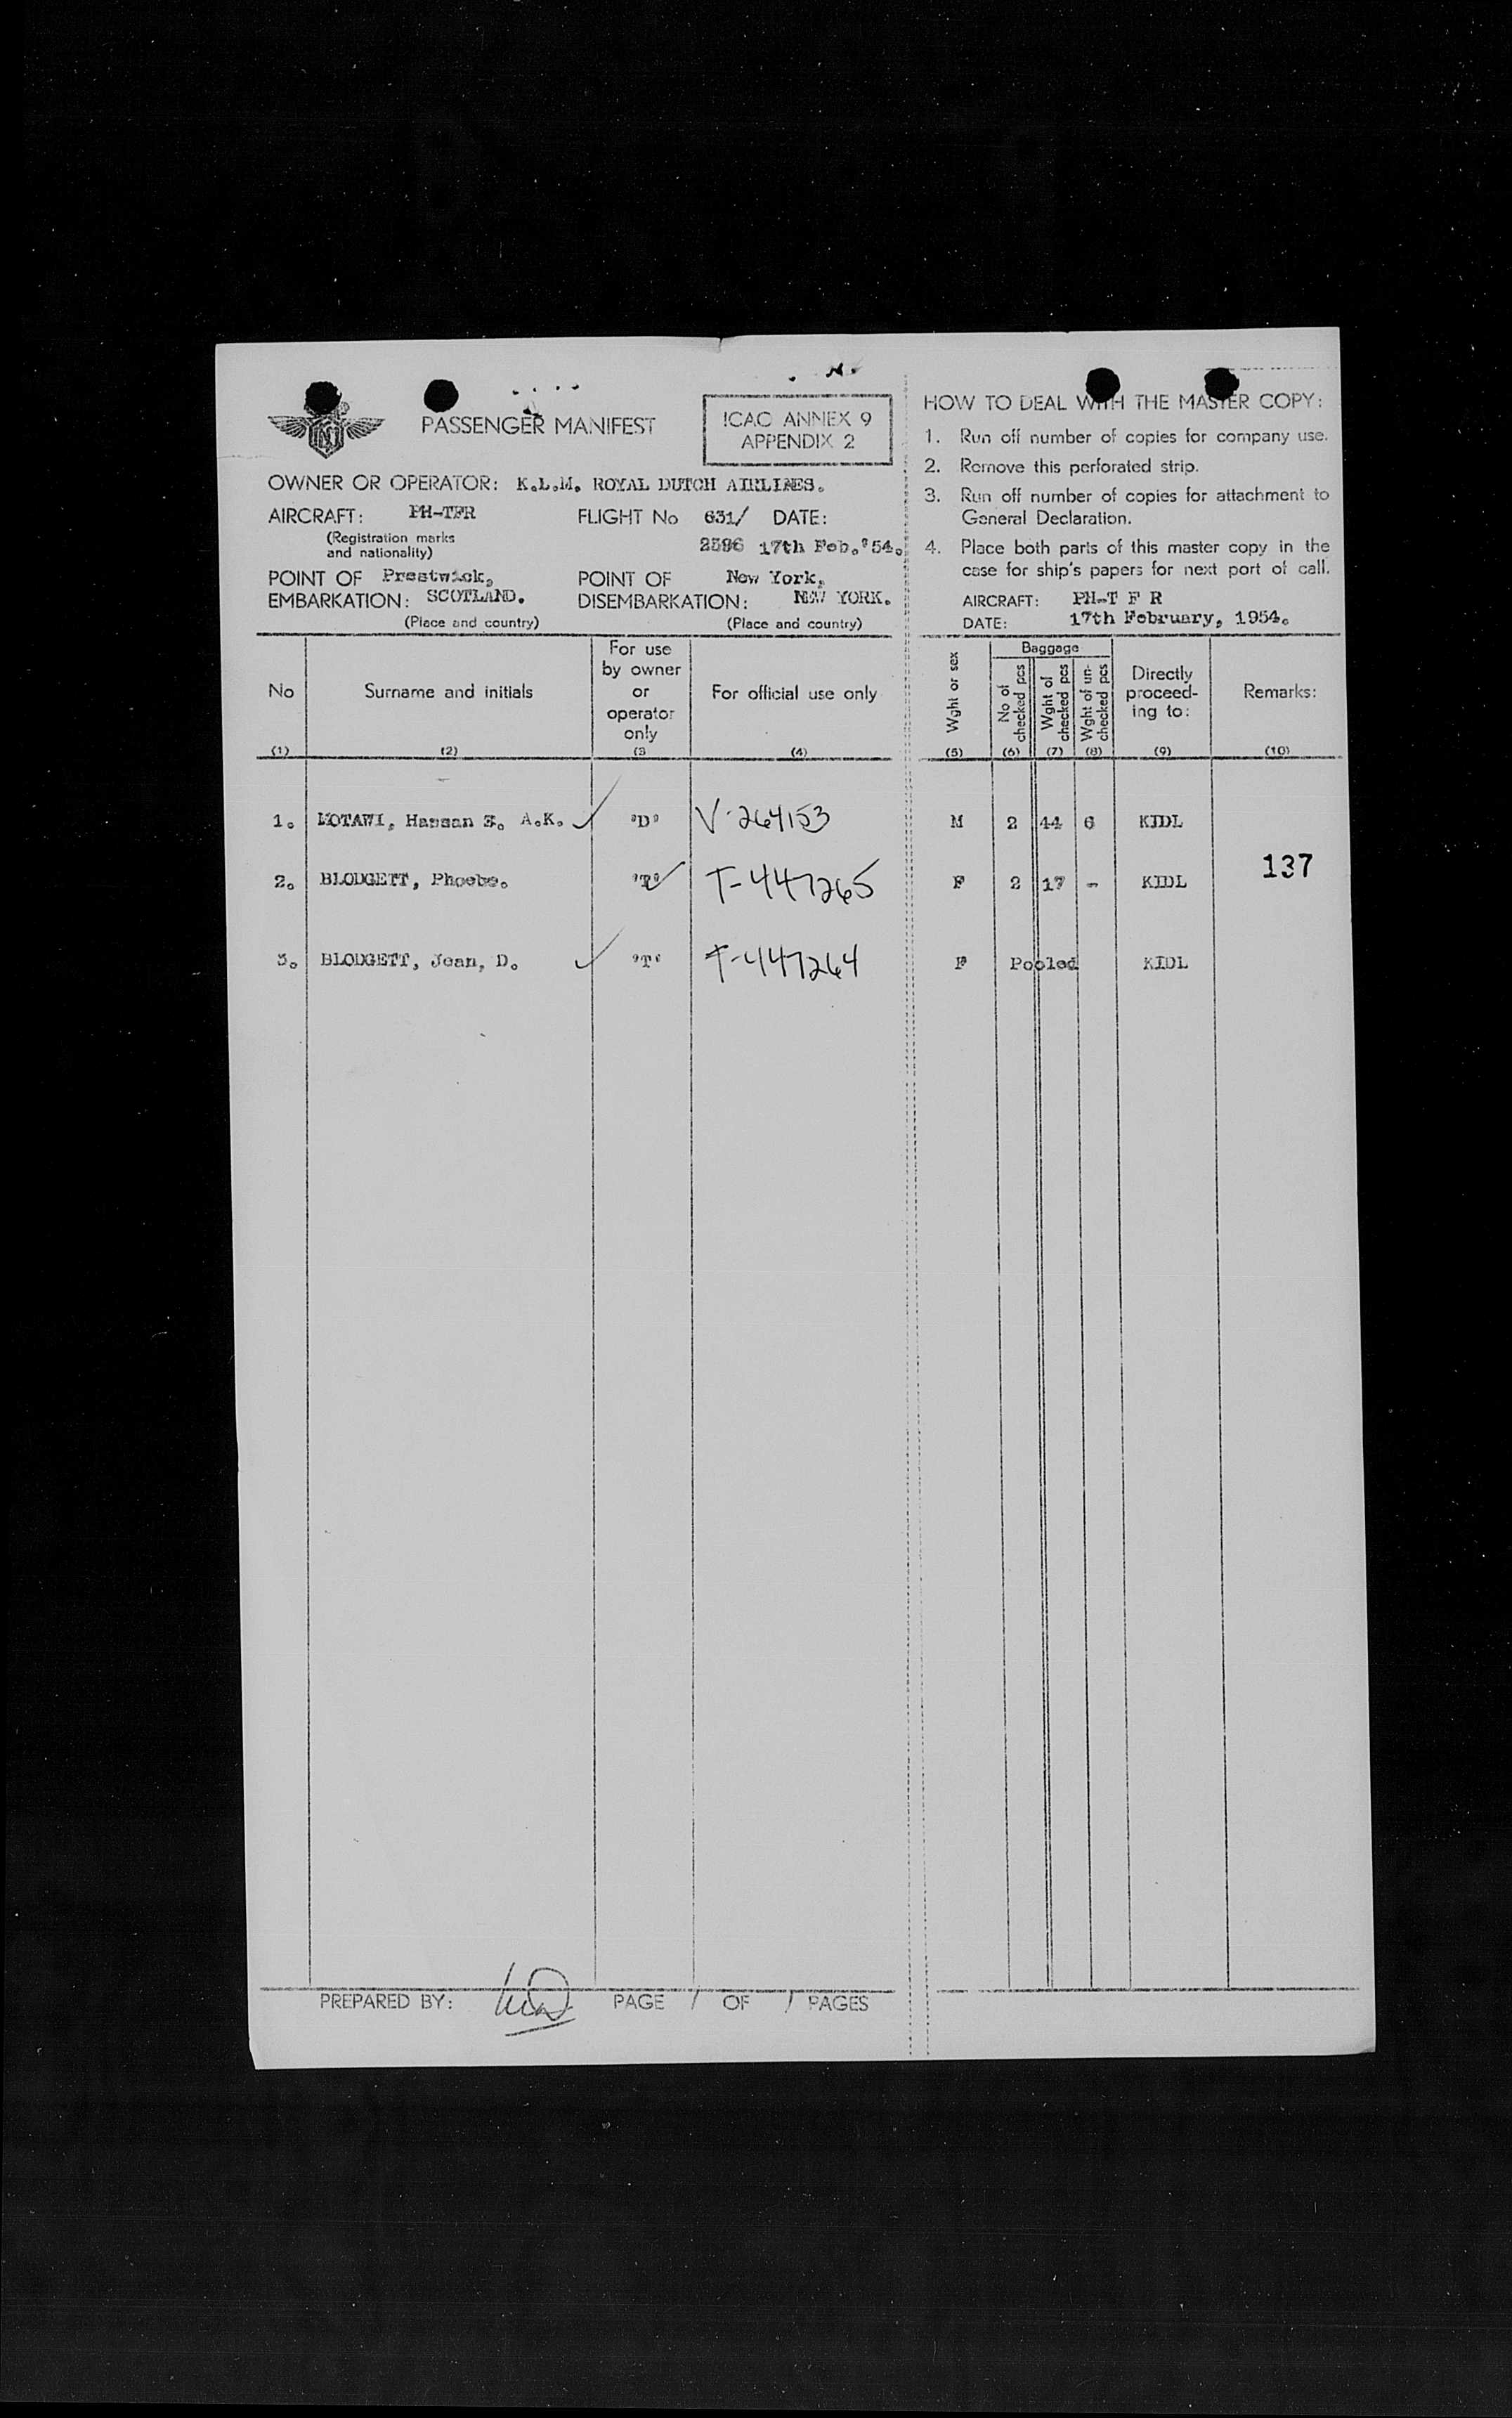 PASSENGER MANIFEST
ICAO ANNEX 9
APPENDIX 2
OWNER OR OPERATOR: K.L.M. ROYAL DUTCH AIRLINES.
AIRCRAFT: PH-TFR FLIGHT No 631/ DATE:
(Registration marks
and nationality)
2596 17th Feb.'54.
POINT OF Prestwick, POINT OF New York,
EMBARKATION: SCOTLAND. DISEMBARKATION: NEW YORK.
(Place and country) (Place and country)
HOW TO DEAL WITH THE MASTER COPY:
1. Run off number of copies for company use.
2. Remove this perforated strip.
3. Run off number of copies for attachment to
General Declaration.
4. Place both parts of this master copy in the
case for ship's papers for next port of call.
AIRCRAFT: PH-T F R
DATE: 17th February, 1954.
No Surname and initials For use
by owner
or
operator
only For official use only Wght or sex Baggage
No of
checked pcs Wght of
checked pcs Wght of un-
checked pcs Directly
proceed-
ing to: Remarks:
(1) (2) (3 (4) (5) (6) (7) (8) (9) (10)
1. MOTAWI, Hassan S. A.K. "D" V-264153 M 2 44 6 KIDL
137
2. BLODGETT, Phoebe. "T" T-447265 F 2 17 - KIDL
3. BLODGETT, Jean, D. "T" T-447264 F Pooled KIDL
PREPARED BY: PAGE 1 OF 1 PAGES